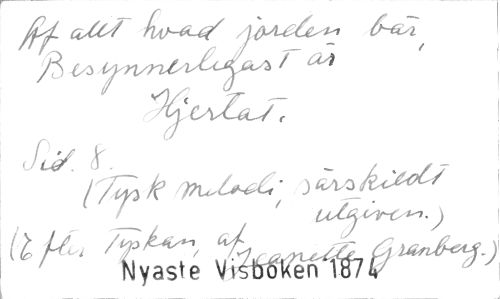 Af allt hvad jorden bär,
Besynnerligast är
Hjertat.
Sid. 8.
(Tysk melodi, särskildt
utgiven.)
(Efter Tyskan, af Jeanette Granberg.)
Nyaste Visboken 1874